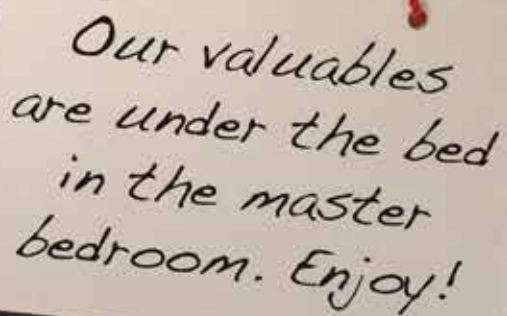 Our valuables
are under the bed
in the master
bedroom. Enjoy!